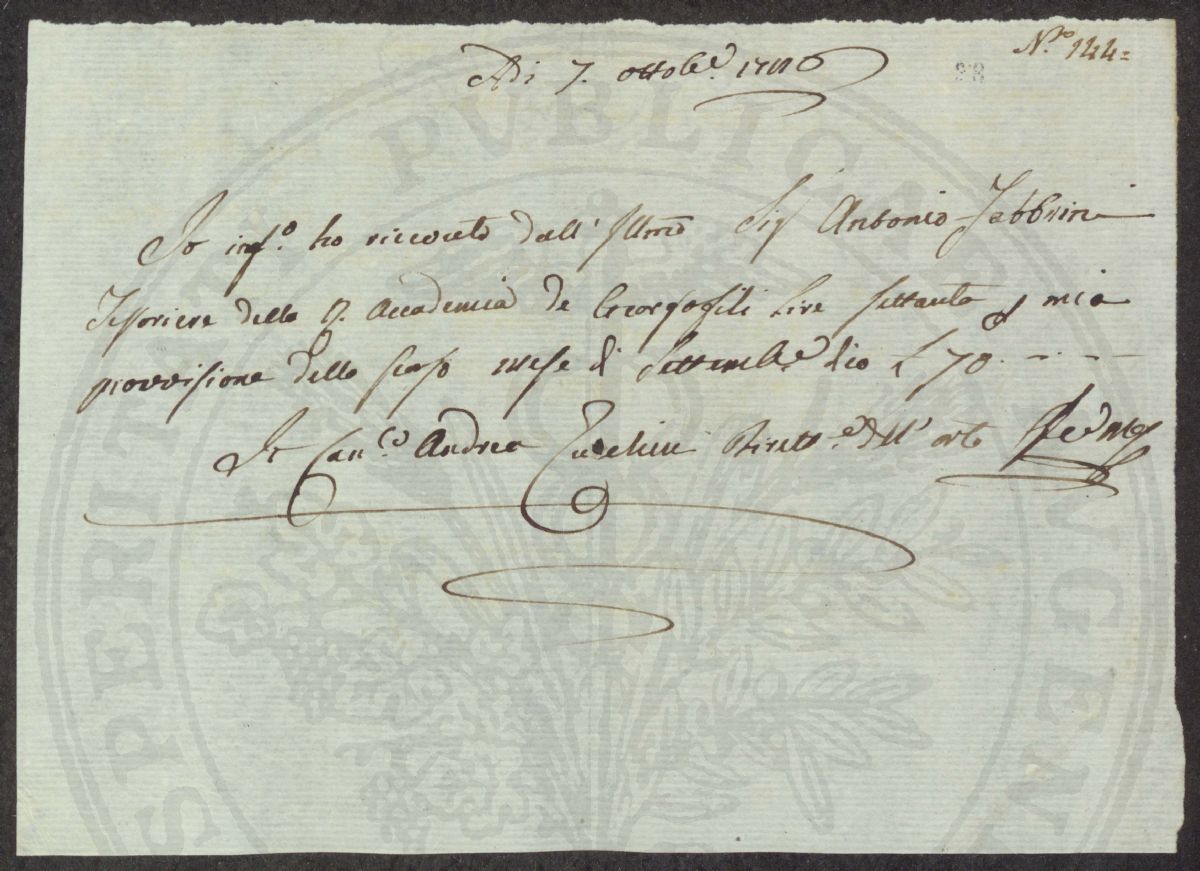 N.º 144=
Adi 7. ottob.e 1786
28
Io inf.º ho ricevuto dall' Illmo Sig.r Antonio Fabbrini
Tesoriere della R. Accademia de Georgofili Lire settanta p mia
provvisione dello scorso mese di Settemb.e dico £ 70. - . -
Io Can.co Andrea Zucchini Dirett.e dell' orto
PROSPERITATI PUBLICAE AUGENDAE